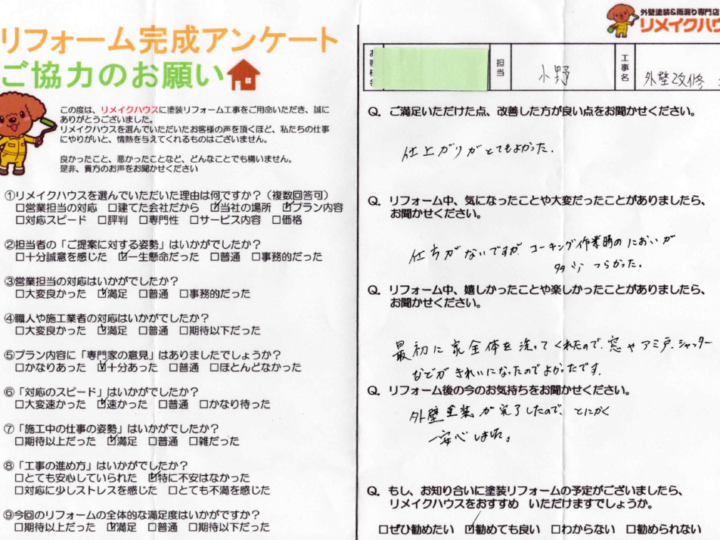 リフォーム完成アンケート
ご協力のお願い
この度は、リメイクハウスに塗装リフォーム工事をご用命いただき、誠に
ありがとうございました。
リメイクハウスを選んでいただいたお客様の声を頂くほど、私たちの仕事
にやりがいと、情熱を与えてくれるものはございません。
良かったこと、悪かったことなど、どんなことでも構いません。
是非、貴方のお声をお聞かせください
①リメイクハウスを選んでいただいた理由は何ですか?(複数回答可)
□営業担当の対応 □建てた会社だから ☑当社の場所 ☑プラン内容
□対応スピード □評判 □専門性 □サービス内容 □価格
②担当者の「ご提案に対する姿勢」はいかがでしたか?
□十分誠意を感じた ☑一生懸命だった □普通 □事務的だった
③営業担当の対応はいかがでしたか?
□大変良かった ☑満足 □普通 □事務的だった
④職人や施工業者の対応はいかがでしたか?
□大変良かった ☑満足 □普通 □期待以下だった
⑤プラン内容に「専門家の意見」はありましたでしょうか?
□かなりあった ☑十分あった □普通 □ほとんどなかった
⑥「対応のスピード」はいかがでしたか?
□大変速かった ☑速かった □普通 □かなり待った
⑦「施工中の仕事の姿勢」はいかがでしたか?
□期待以上だった ☑満足 □普通 □雑だった
⑧「工事の進め方」はいかがでしたか?
□とても安心していられた ☑特に不安はなかった
□対応に少しストレスを感じた □とても不満を感じた
⑨今回のリフォームの全体的な満足度はいかがですか?
□期待以上だった ☑満足 □普通 □期待以下だった
外壁塗装&雨漏り専門店
リメイクハウス
お客様名
担当 小野 工事名 外壁改修
Q. ご満足いただけた点、改善した方が良い点をお聞かせください。
仕上がりがとてもよかった。
Q. リフォーム中、気になったことや大変だったことがありましたら、
お聞かせください。
仕方がないですが コーキング作業時のにおいが
多少 つらかった。
Q. リフォーム中、嬉しかったことや楽しかったことがありましたら、
お聞かせください。
最初に家全体を洗ってくれたので、窓やアミ戸、シャッター
などがきれいになったのでよかったです。
Q. リフォーム後の今のお気持ちをお聞かせください。
外壁塗装が完了したので、とにかく
一安心しました。
Q. もし、お知り合いに塗装リフォームの予定がございましたら、
リメイクハウスをおすすめ いただけますでしょうか。
□ぜひ勧めたい ☑勧めても良い □わからない □勧められない